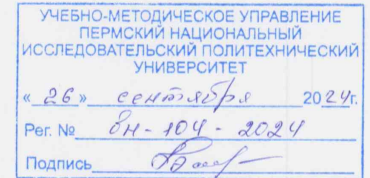 УЧЕБНО-МЕТОДИЧЕСКОЕ УПРАВЛЕНИЕ
ПЕРМСКИЙ НАЦИОНАЛЬНЫЙ
ИССЛЕДОВАТЕЛЬСКИЙ ПОЛИТЕХНИЧЕСКИЙ
УНИВЕРСИТЕТ
« 26 » сентября 2024г.
Рег. № вн-104-2024
Подпись